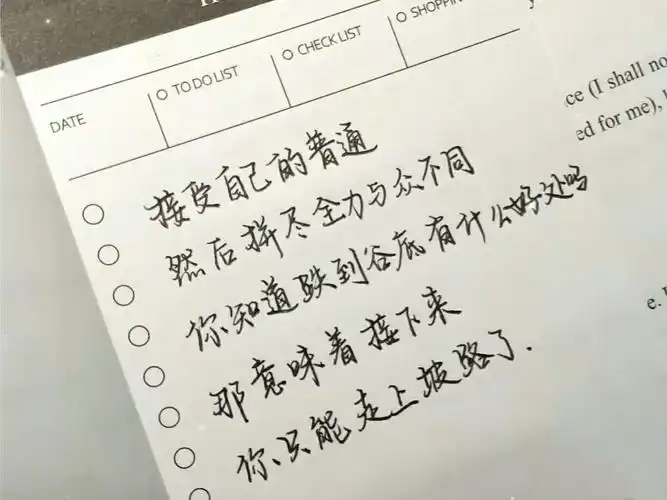 DATE
TO DO LIST
CHECK LIST
SHOPPIN
接受自己的普通
然后拼尽全力与众不同
你知道跌到谷底有什么好处吗
那意味着接下来
你只能走上坡路了.
ce (I shall no
ed for me),
e.